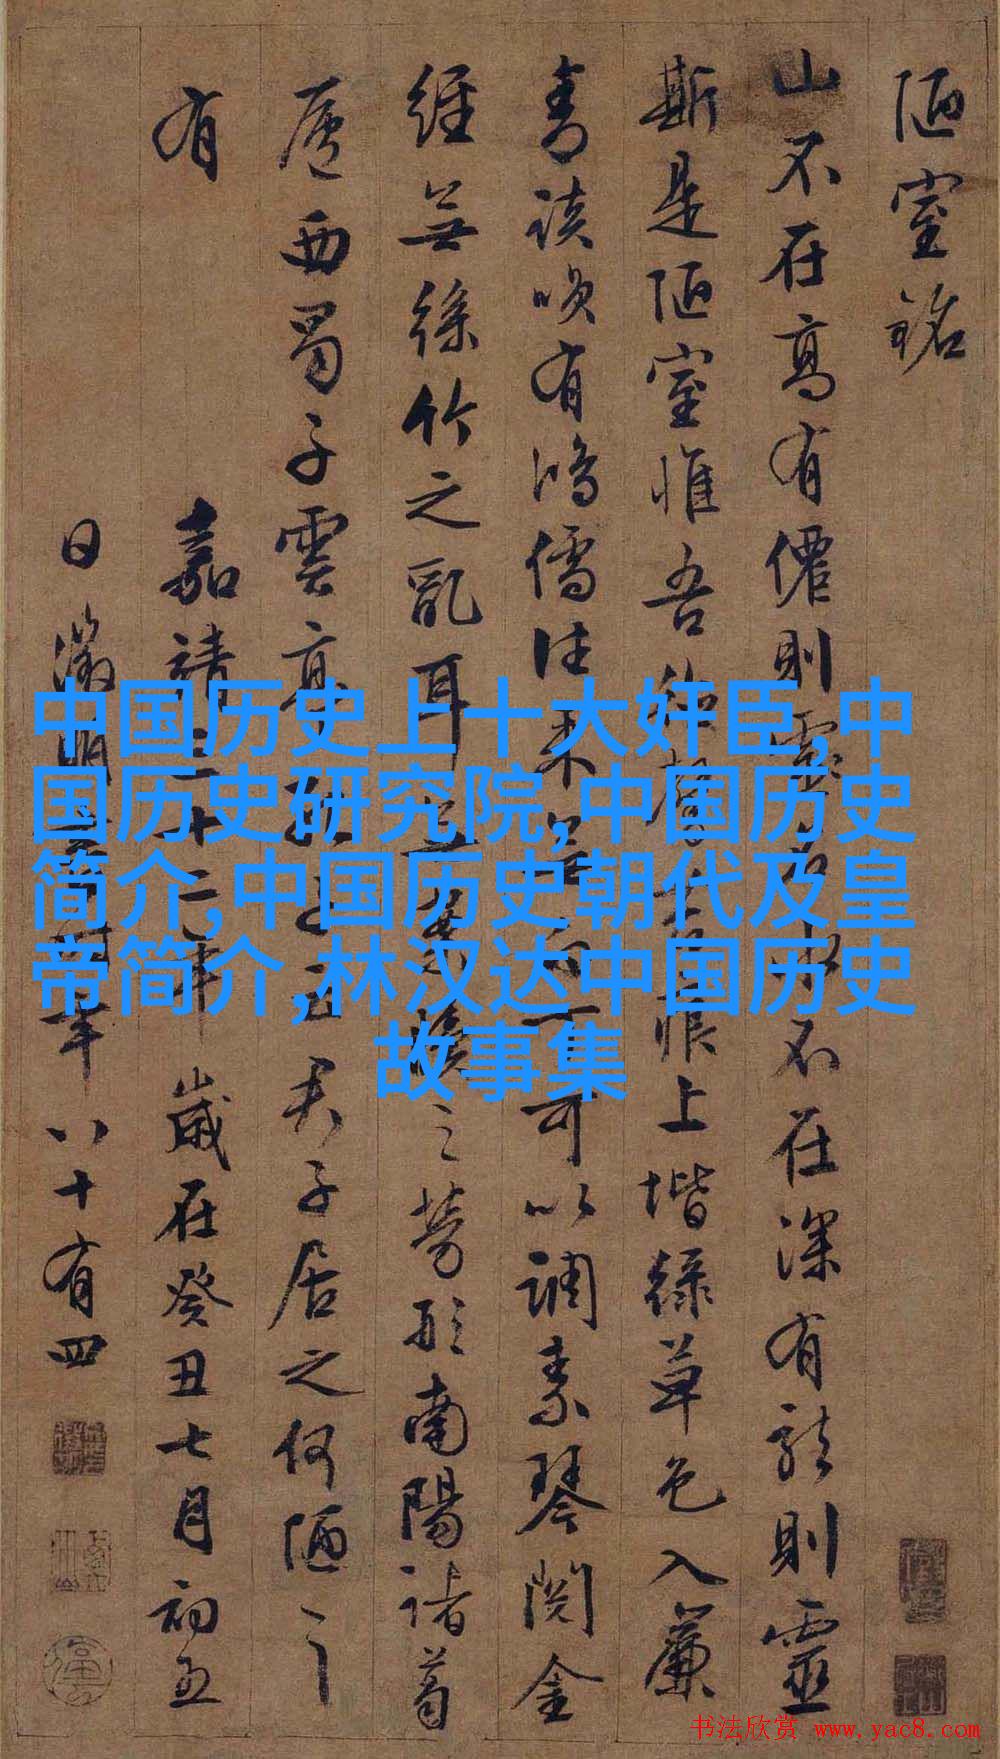 陋室銘
山不在高有僊則水不在深有龍則靈
斯是陋室惟吾德馨苔痕上堦綠草色入簾
青談咲有鴻儒往來無白丁可以調素琴閱金
經無絲竹之亂耳無案牘之勞形南陽諸葛
廬西蜀子雲亭孔子云君子居之何陋之
有
嘉靖三十二年歲在癸丑七月初五
日徵明時年八十有四
中国历史上十大奸臣,中
国历史研究院,中国历史
简介,中国历史朝代及皇
帝简介,林汉达中国历史
故事集
书法欣赏 www.yac8.com